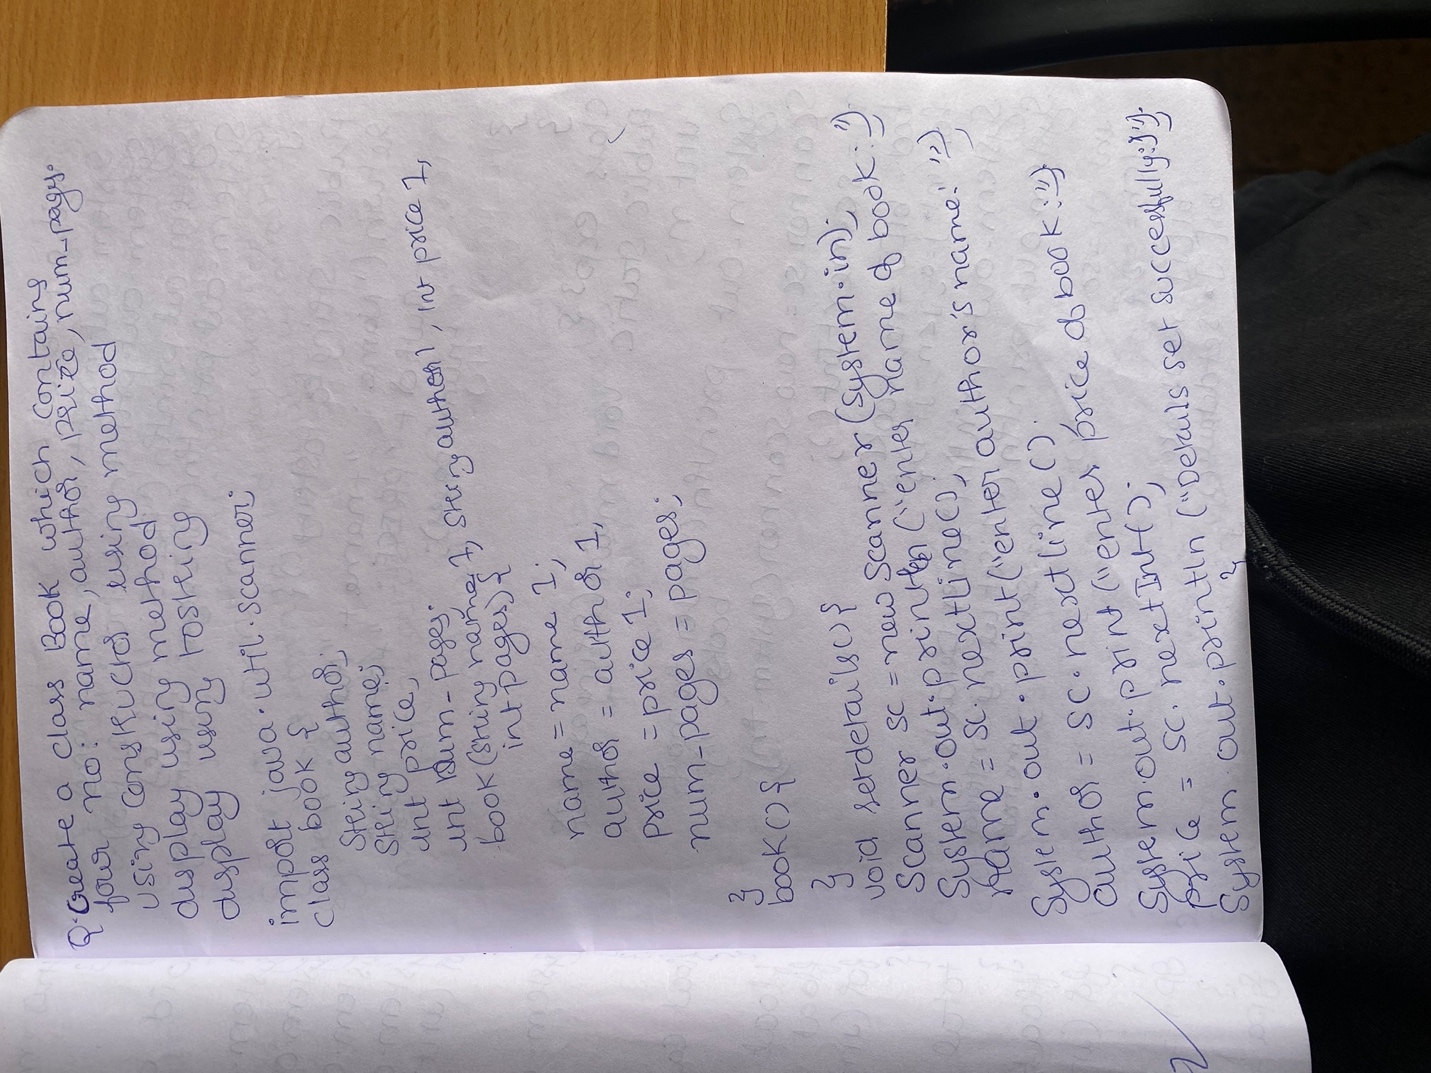 Q. Create a class Book which contains
four no: name, author, price, num_page.
using constructor using method
display using method
display using tostring
import java.util.scanner;
class book {
string author;
string name;
int price;
int num-page;
book(string name1, string author1, int price1,
int pages) {
name = name1;
author = author1;
price = price1;
num-pages = pages;
}
book() {
}
void setdetails() {
Scanner sc = new Scanner(System.in);
System.out.print("enter name of book:");
name = sc.nextline();
System.out.print("enter author's name:");
author = sc.nextline();
System.out.print("enter price of book:");
price = sc.nextInt();
System.out.println("Details set successfully:");
}